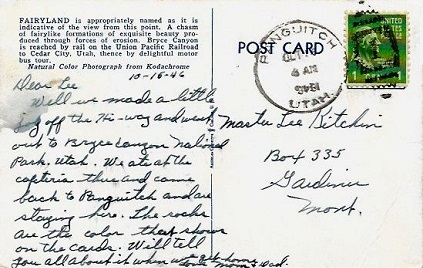 FAIRYLAND is appropriately named as it is
indicative of the view from this point. A chasm
of fairylike formations of exquisite beauty pro-
duced through forces of erosion. Bryce Canyon
is reached by rail on the Union Pacific Railroad
to Cedar City, Utah, thence by delightful motor
bus tour.
Natural Color Photograph from Kodachrome
10-16-46
Dear Lee
Well we made a little
jog off the Hi-way and went
out to Bryce Canyon National
Park. Utah. We ate at the
cafteria thus and came
back to Panguitch and are
staying here. The rocks
are the color that shows
on the cards. Will tell
you all about it when we get home
Love Mom & Dad.
POST CARD
PANGUITCH
OCT
8 AM
UTAH
UNITED
STATES
1
1
Master Lee Kitchin
Box 335
Gardiner
Mont.